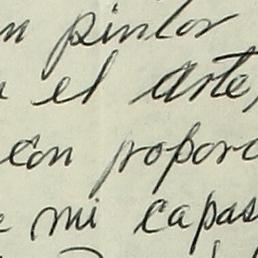 n pintor
el arte,
con propor
mi capas